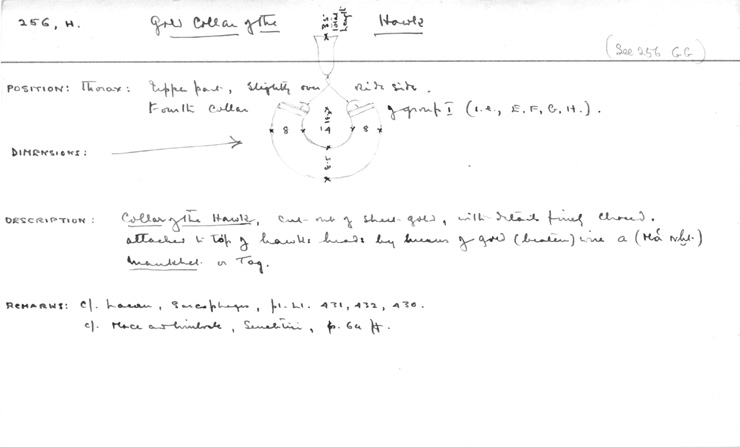 256, H. Gold Collar of the Hawk
(See 256 GG)
POSITION: Thorax: Upper part, slightly over side.
Fourth collar of group I (i.e., E, F, G, H.).
8 14 8
DIMENSIONS:
DESCRIPTION: Collar of the Hawk, cut out of sheet-gold, with details finely chased.
attached to top of hawks heads by means of gold (beaten) wire a
mankhet or Tag.
REMARKS: cf. Lacau, Sarcophages, pl. LI. 431, 432, 430.
cf. Mace and Winlock, Senebtisi, p. 64 ff.